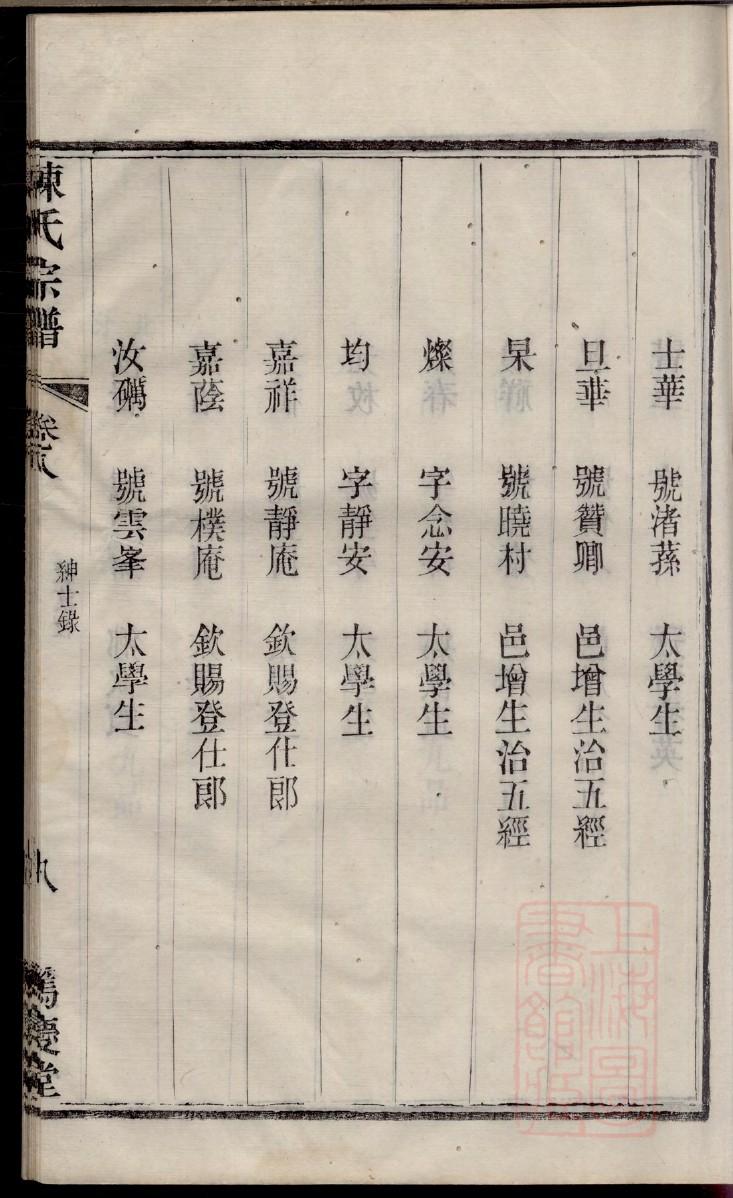 士華 號渚蓀 太學生
旦華 號贊卿 邑增生治五經
杲 號曉村 邑增生治五經
燦 字念安 太學生
均 字靜安 太學生
嘉祥 號靜庵 欽賜登仕郎
嘉蔭 號樸庵 欽賜登仕郎
汝礪 號雲峯 太學生
陳氏宗譜
紳士錄
篤慶堂
上海圖書館藏